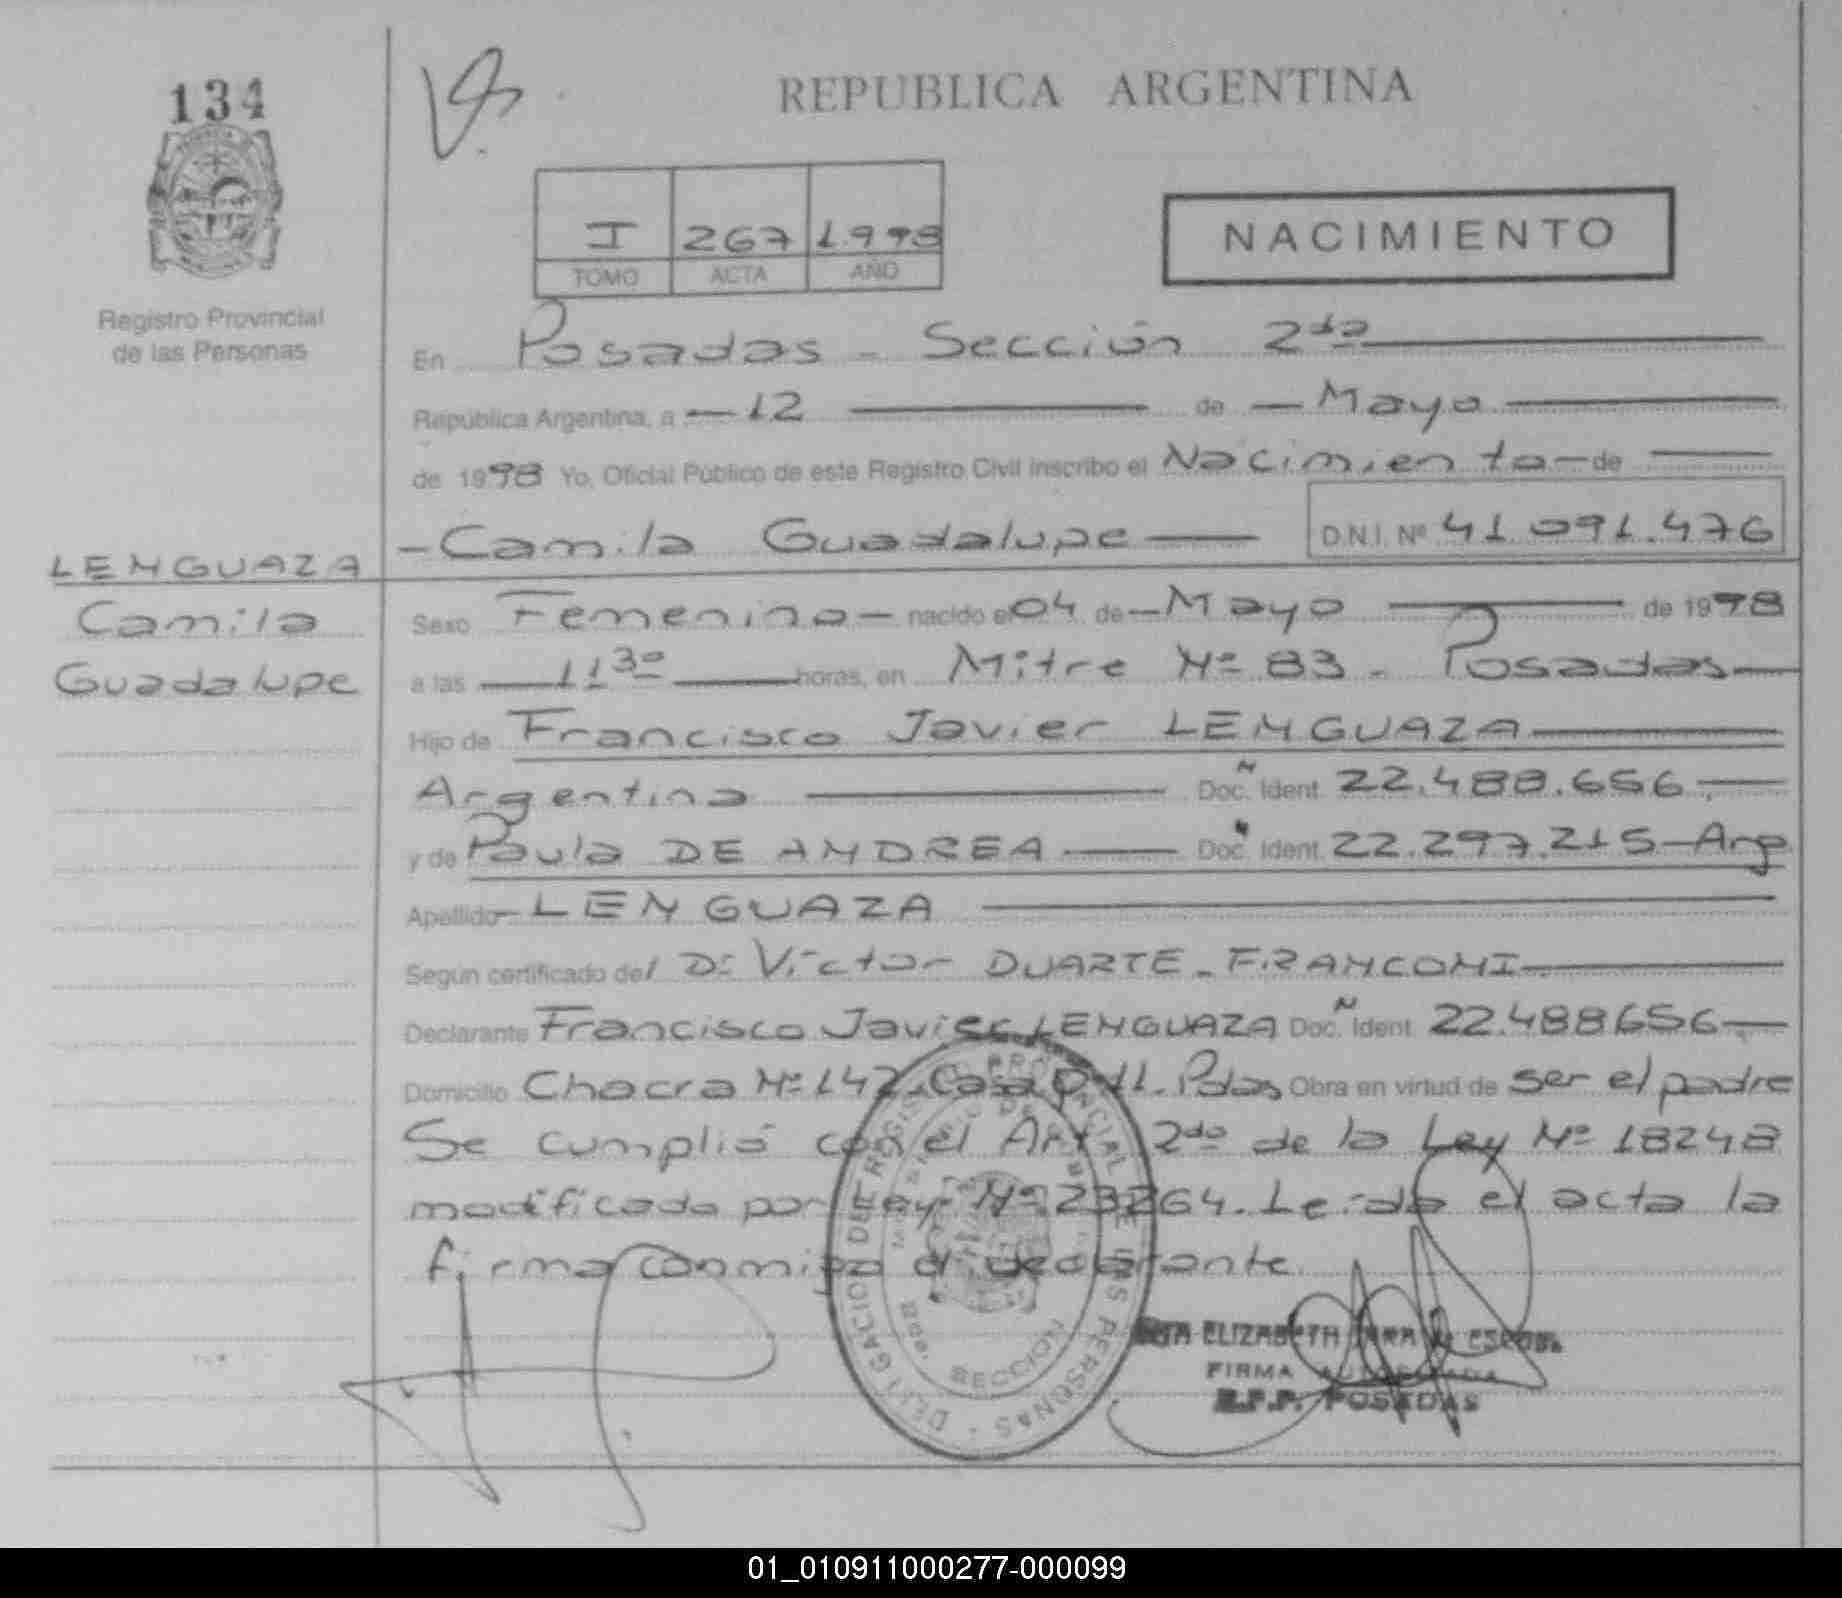 134
REPUBLICA ARGENTINA
I 267 1.998
TOMO ACTA AÑO
NACIMIENTO
Registro Provincial
de las Personas
En Posadas - Sección 2da
República Argentina, a 12 de Mayo
de 1998 Yo, Oficial Público de este Registro Civil inscribo el Nacimiento de
Camila Guadalupe D.N.I. Nº 41.091.476
LENGUAZA
Camila
Guadalupe
Sexo Femenino nacido el 04 de Mayo de 1998
a las 11 30 horas, en Mitre Nº 83 - Posadas
Hijo de Francisco Javier LENGUAZA
Argentina Doc. Ident. 22.488.656
y de Paula DE ANDREA Doc. Ident. 22.297.215 - Arg
Apellido LENGUAZA
Según certificado del Dr Víctor DUARTE - FRANCONI
Declarante Francisco Javier LENGUAZA Doc. Ident. 22.488656
Domicilio Chacra Nº 142 Casa 11. Pdas Obra en virtud de ser el padre
Se cumplió con el Art 2do de la Ley Nº 18248
modificada por Ley Nº 23264. Leída el acta la
firma conmigo el declarante.
DELEGACION DEL REGISTRO PROVINCIAL DE LAS PERSONAS
SECCION
ELIZABETH
FIRMA AUTORIZADA
R.P.P. POSADAS
01_010911000277-000099